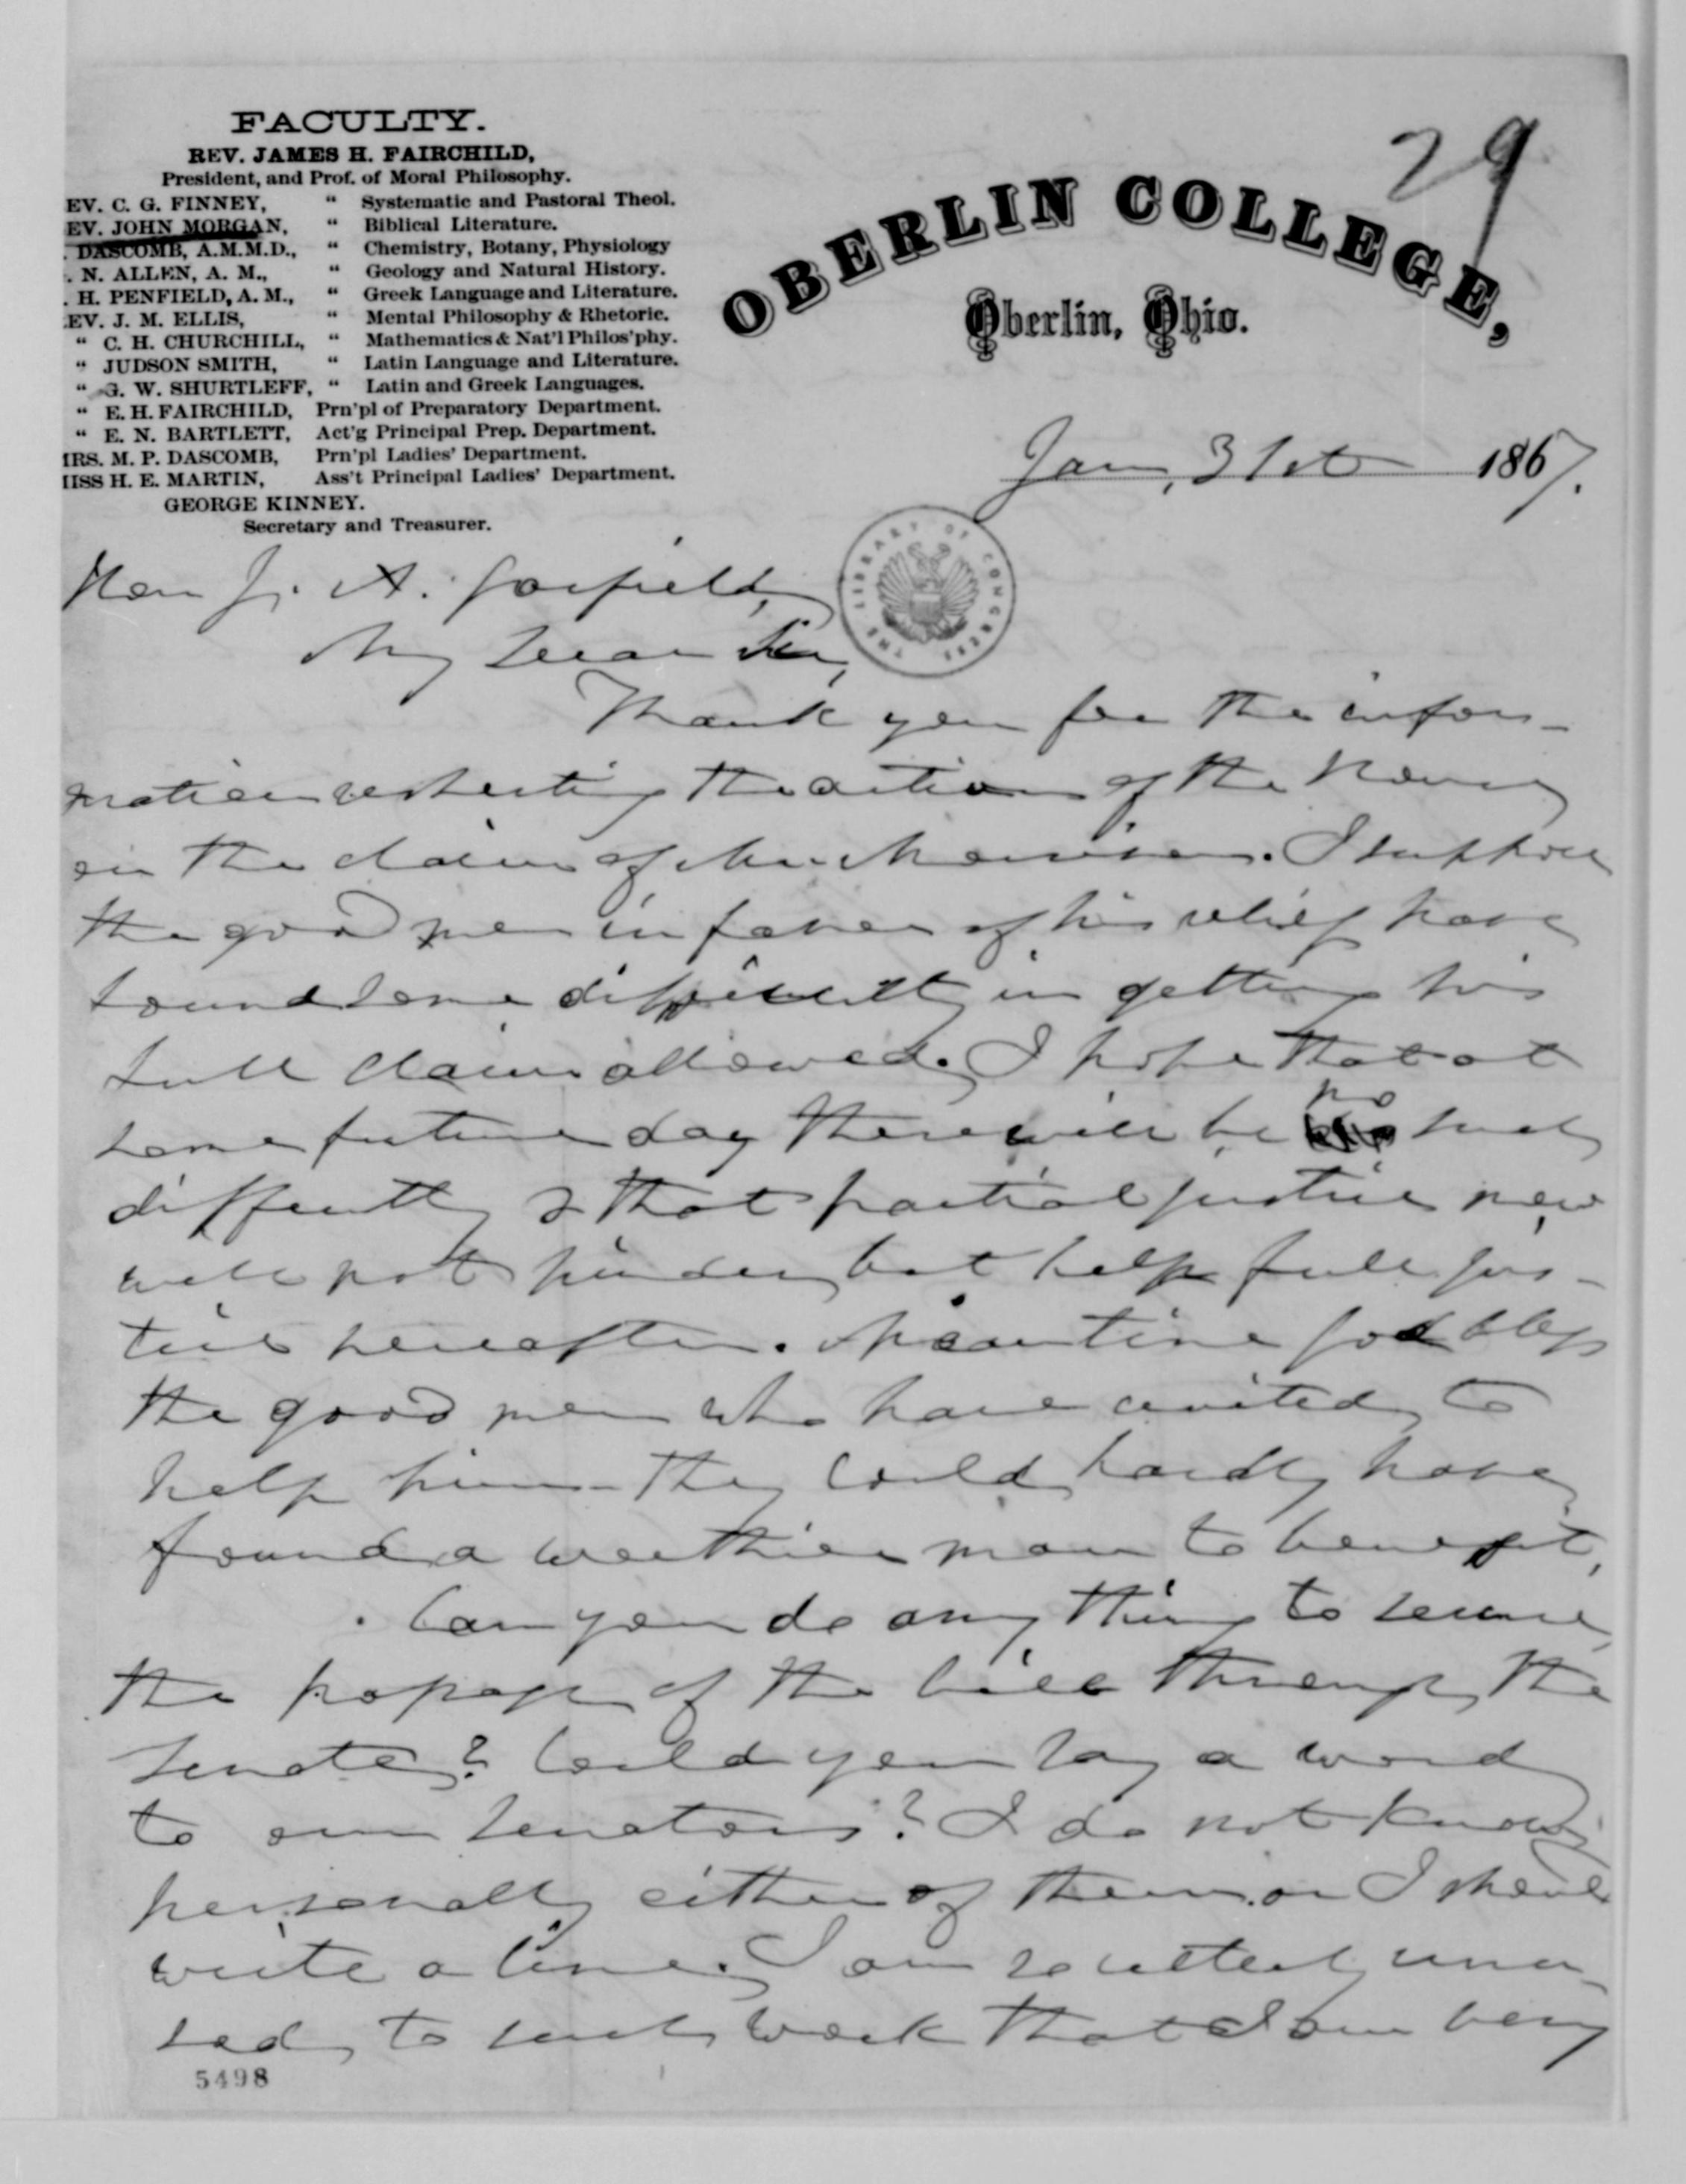 FACULTY.
REV. JAMES H. FAIRCHILD,
President, and Prof. of Moral Philosophy.
EV. C. G. FINNEY, " Systematic and Pastoral Theol.
EV. JOHN MORGAN, " Biblical Literature.
. DASCOMB, A.M.M.D., " Chemistry, Botany, Physiology
. N. ALLEN, A. M., " Geology and Natural History.
. H. PENFIELD, A. M., " Greek Language and Literature.
EV. J. M. ELLIS, " Mental Philosophy & Rhetoric.
" C. H. CHURCHILL, " Mathematics & Nat'l Philos'phy.
" JUDSON SMITH, " Latin Language and Literature.
" G. W. SHURTLEFF, " Latin and Greek Languages.
" E. H. FAIRCHILD, Prn'pl of Preparatory Department.
" E. N. BARTLETT, Act'g Principal Prep. Department.
IRS. M. P. DASCOMB, Prn'pl Ladies' Department.
IISS H. E. MARTIN, Ass't Principal Ladies' Department.
GEORGE KINNEY.
Secretary and Treasurer.
29
OBERLIN COLLEGE,
Oberlin, Ohio.
Jan, 31st 1867.
THE LIBRARY OF CONGRESS
Hon J. A. Garfield,
My Dear Sir,
Thank you for the infor-
mation respecting the action of the House
on the claim of Mr. I suppose
the good men in favor of his relief have
found some difficulty in getting his
full claim allowed. I hope that at
some future day there will be no such
difficulty & that partial justice now
will not hinder, but help full jus-
tice hereafter. Meantime God bless
the good men who have united to
help him - they could hardly have
found a worthier man to benefit.
Can you do any thing to secure
the passage of the bill through the
Senate? Could you say a word
to our Senators? I do not know
personally either of them or I should
write a line. I am so utterly unu-
sed to such work that I am very
5498